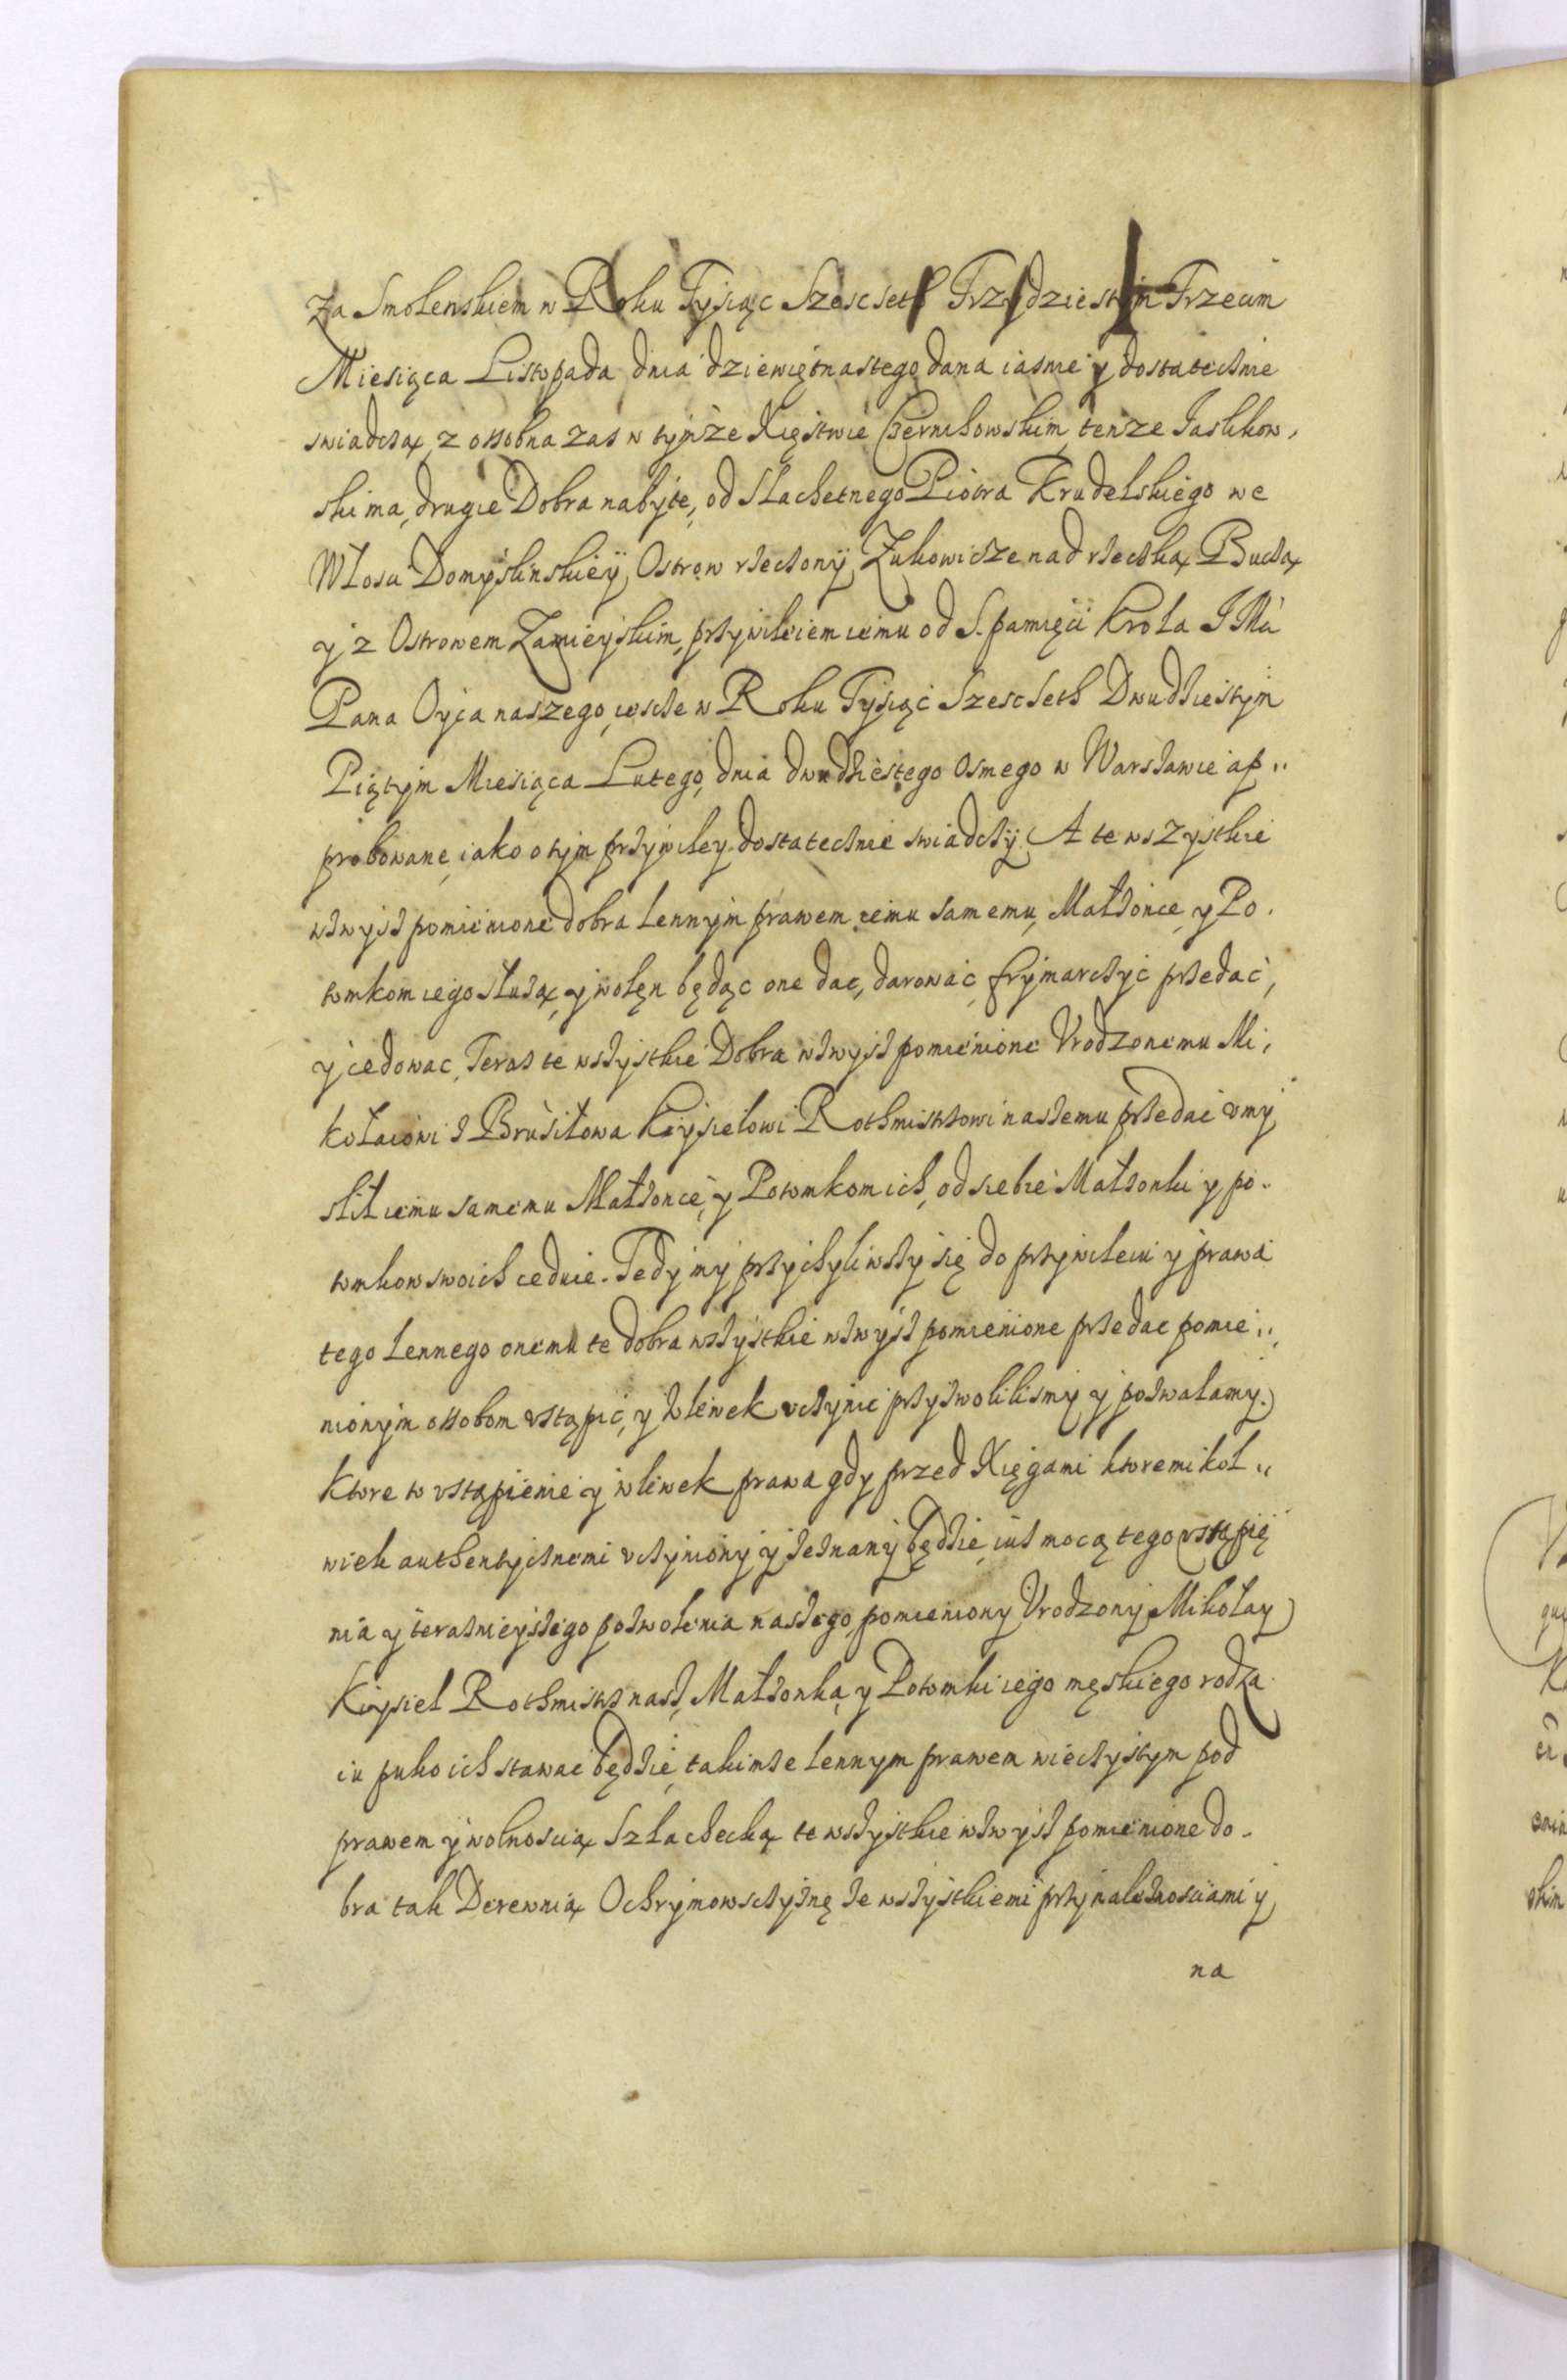 Za Smolenskiem w Roku Tysiąc Szescseth Trzydziestym Trzecim
Miesiąca Listopada dnia dziewiętnastego dana iasnie y dostatecznie
swiadczą, z ossobna zas w tymze Xięstwie Czernihowskim, tenze Jaslikow,
ski ma, drugie Dobra nabyte, od Slachetnego Piotra Krudelskiego we
Włosci Domyslinskiey, Ostrow rzeczony, Zukowicze nad rzeczką Buczą
y z Ostrowem Zamieyskim, przywileiem iemu od S. pamięci Krola IMci
Pana Oyca naszego, iescze w Roku Tysiąc Szescseth Dwudziestym
Piątym Miesiąca Lutego, dnia dwudziestego Osmego w Warszawie ap„
probowane, iako o tym przywiley dostatecznie swiadczy. A te wszystkie
wzwysz pomienione dobra Lennym prawem iemu samemu, Małzonce, y Po„
tomkom iego słuzą, y wolen będąc one dac, darowac, frymarczyc przedac,
y cedowac, Teraz te wszystkie Dobra wzwysz pomienione Vrodzonemu Mi,
kołaiowi z Brusiłowa Kisielowi Rothmistrzowi naszemu przedac vmy
slił iemu samemu Małzonce, y Potomkom ich, od siebie Małzonki y po„
tomkow swoich ceduie. Tedy my przychyliwszy się do przywileiu y prawa
tego Lennego onemu te dobra wszystkie wzwysz pomienione przedac pomie„
nionym ossobom vstąpic, y wlewek vczynic przyzwolilismy y pozwalamy.
Ktore to vstąpienie y wlewek prawa gdy przed Xięgami ktoremikol„
wiek authentycznemi vczyniony y zeznany będzie, iuz mocą tego vstąpie
nia y teraznieyszego pozwolenia naszego, pomieniony Vrodzony Mikołay
Kisiel Rothmistrz nasz, Małzonka, y Potomki iego męskiego rodza
iu puko ich stawac będzie, takimze Lennym prawem wieczystym pod
prawem y wolnoscią Szlachecką te wszystkie wzwysz pomienione do„
bra tak Derewnią Ochrymowszczyznę ze wszystkiemi przynaleznosciami y
na